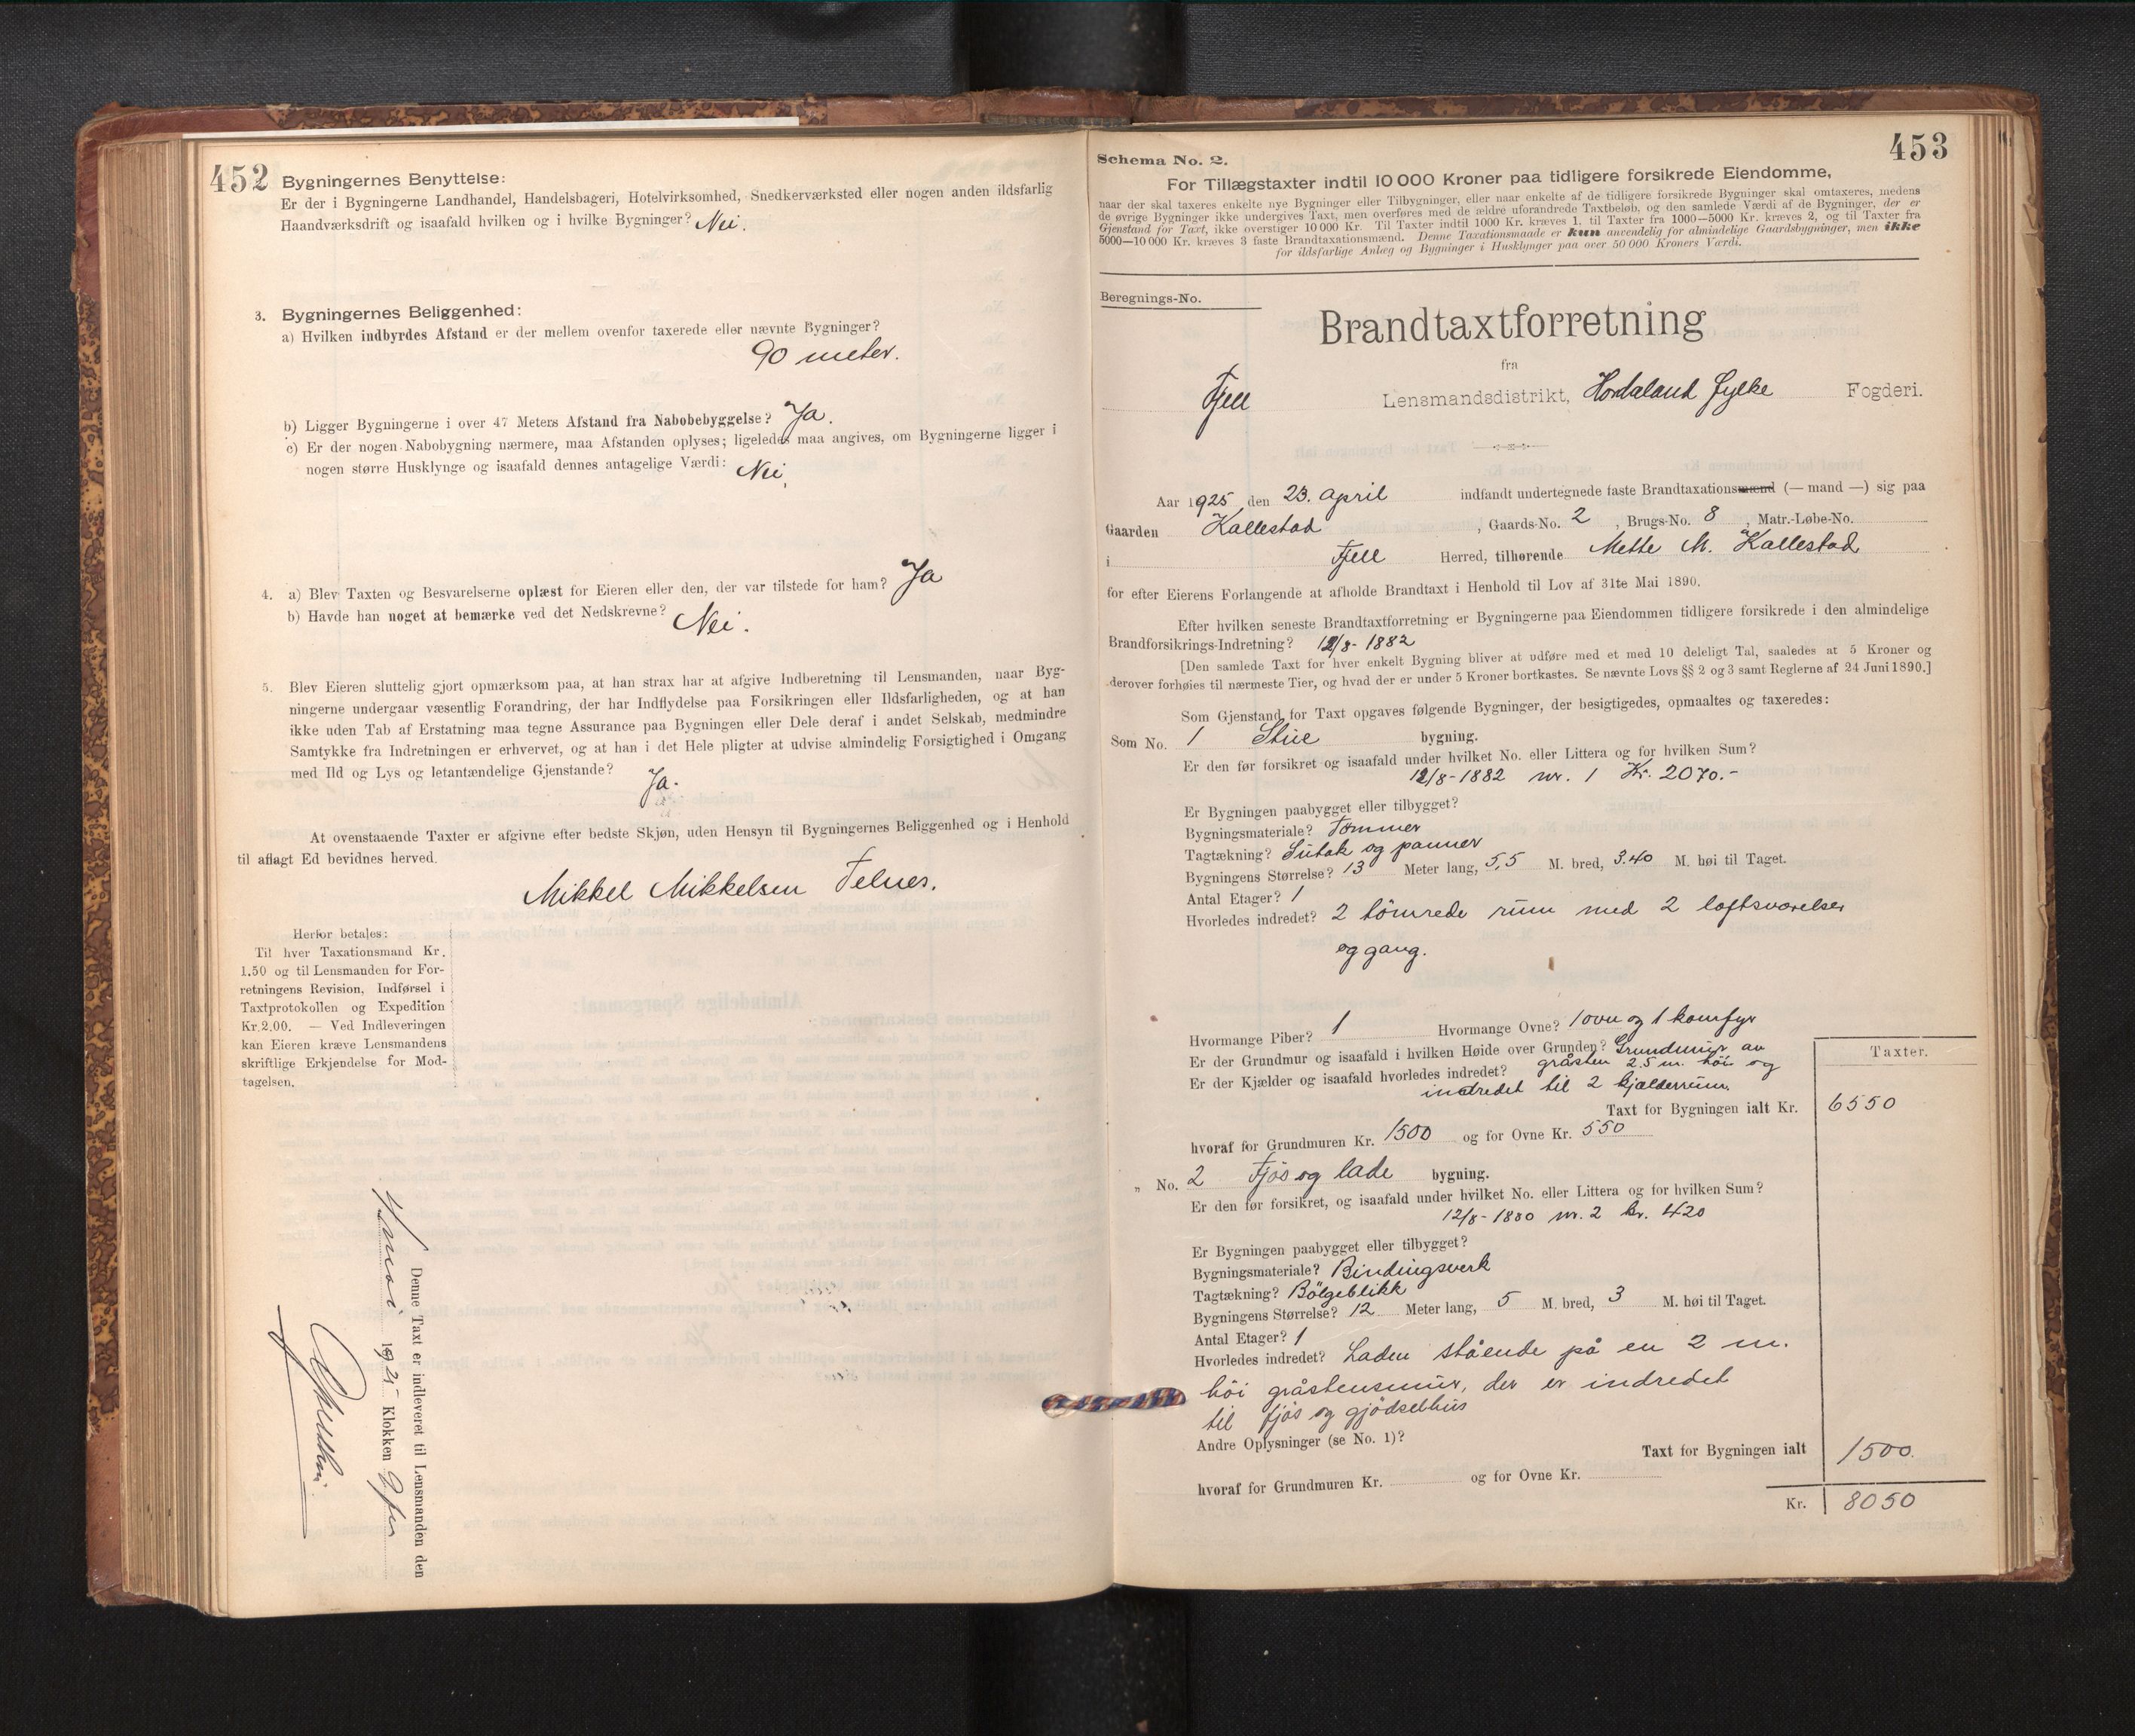 452
Bygningernes Benyttelse:
Er der i Bygningerne Landhandel, Handelsbageri, Hotelvirksomhed, Snedkerværksted eller nogen anden ildsfarlig
Haandværksdrift og isaafald hvilken og i hvilke Bygninger? Nei.
3. Bygningernes Beliggenhed:
a) Hvilken indbyrdes Afstand er der mellem ovenfor taxerede eller nævnte Bygninger?
90 meter.
b) Ligger Bygningerne i over 47 Meters Afstand fra Nabobebyggelse? Ja.
c) Er der nogen Nabobygning nærmere, maa Afstanden oplyses; ligeledes maa angives, om Bygningerne ligger i
nogen større Husklynge og isaafald dennes antagelige Værdi: Nei.
4. a) Blev Taxten og Besvarelserne oplæst for Eieren eller den, der var tilstede for ham? Ja
b) Havde han noget at bemærke ved det Nedskrevne? Nei.
5. Blev Eieren sluttelig gjort opmærksom paa, at han strax har at afgive Indberetning til Lensmanden, naar Byg-
ningerne undergaar væsentlig Forandring, der har Indflydelse paa Forsikringen eller Ildsfarligheden, og at han
ikke uden Tab af Erstatning maa tegne Assurance paa Bygningen eller Dele deraf i andet Selskab, medmindre
Samtykke fra Indretningen er erhvervet, og at han i det Hele pligter at udvise almindelig Forsigtighed i Omgang
med Ild og Lys og letantændelige Gjenstande? Ja.
At ovenstaaende Taxter er afgivne efter bedste Skjøn, uden Hensyn til Bygningernes Beliggenhed og i Henhold
til aflagt Ed bevidnes herved.
Mikkel Mikkelsen Telnes.
Herfor betales:
Til hver Taxationsmand Kr.
1.50 og til Lensmanden for For-
retningens Revision, Indførsel i
Taxtprotokollen og Expedition
Kr. 2.00. — Ved Indleveringen
kan Eieren kræve Lensmandens
skriftlige Erkjendelse for Mod-
tagelsen.
Denne Taxt er indleveret til Lensmanden den
1925 Klokken
453
Schema No. 2.
For Tillægstaxter indtil 10 000 Kroner paa tidligere forsikrede Eiendomme,
naar der skal taxeres enkelte nye Bygninger eller Tilbygninger, eller naar enkelte af de tidligere forsikrede Bygninger skal omtaxeres, medens
de øvrige Bygninger ikke undergives Taxt, men overføres med de ældre uforandrede Taxtbeløb, og den samlede Værdi af de Bygninger, der er
Gjenstand for Taxt, ikke overstiger 10 000 Kr. Til Taxter indtil 1000 Kr. kræves 1, til Taxter fra 1000—5000 Kr. kræves 2, og til Taxter fra
5000—10 000 Kr. kræves 3 faste Brandtaxationsmænd. Denne Taxationsmaade er kun anvendelig for almindelige Gaardsbygninger, men ikke
for ildsfarlige Anlæg og Bygninger i Husklynger paa over 50 000 Kroners Værdi.
Beregnings-No.
Brandtaxtforretning
fra
Fjell Lensmandsdistrikt, Hordaland fylke Fogderi.
Aar 1925, den 23. april indfandt undertegnede faste Brandtaxationsmænd (— mand —) sig paa
Gaarden Kallestad, Gaards-No. 2, Brugs-No. 8, Matr.-Løbe-No.
i Fjell Herred, tilhørende Mette M. Kallestad
for efter Eierens Forlangende at afholde Brandtaxt i Henhold til Lov af 31te Mai 1890.
Efter hvilken seneste Brandtaxtforretning er Bygningerne paa Eiendommen tidligere forsikrede i den almindelige
Brandforsikrings-Indretning? 12/8-1882
[Den samlede Taxt for hver enkelt Bygning bliver at udføre med et med 10 deleligt Tal, saaledes at 5 Kroner og
derover forhøies til nærmeste Tier, og hvad der er under 5 Kroner bortkastes. Se nævnte Lovs §§ 2 og 3 samt Reglerne af 24 Juni 1890.]
Som Gjenstand for Taxt opgaves følgende Bygninger, der besigtigedes, opmaaltes og taxeredes:
Som No. 1 Stue bygning.
Er den før forsikret og isaafald under hvilket No. eller Littera og for hvilken Sum?
12/8-1882 nr. 1 Kr. 2070.-
Er Bygningen paabygget eller tilbygget?
Bygningsmateriale? Tømmer
Tagtækning? Sutak og panner
Bygningens Størrelse? 13 Meter lang, 5,5 M. bred, 3.40 M. høi til Taget.
Antal Etager? 1
Hvorledes indredet? 2 tömrede rum med 2 loftsværelser
og gang.
Hvormange Piber? 1 Hvormange Ovne? 1 ovn og 1 komfyr
Er der Grundmur og isaafald i hvilken Høide over Grunden? Grundmur av
Er der Kjælder og isaafald hvorledes indredet? gråsten 2,5 m. høi og
indredet til 2 kjælderrum.
Taxter.
Taxt for Bygningen ialt Kr. 6550
hvoraf for Grundmuren Kr. 1500 og for Ovne Kr. 550
„ No. 2 Fjös og lade bygning.
Er den før forsikret, og isaafald under hvilket No. eller Littera og for hvilken Sum?
12/8-1880 nr. 2 kr. 420
Er Bygningen paabygget eller tilbygget?
Bygningsmateriale? Bindingsverk
Tagtækning? Bölgeblikk
Bygningens Størrelse? 12 Meter lang, 5 M. bred, 3 M. høi til Taget.
Antal Etager? 1
Hvorledes indredet? Laden stående på en 2 m.
höi gråstensmur, der er indredet
til fjös og gjödselhus
Andre Oplysninger (se No. 1)?
Taxt for Bygningen ialt 1500.
hvoraf for Grundmuren Kr. og for Ovne Kr.
Kr. 8050